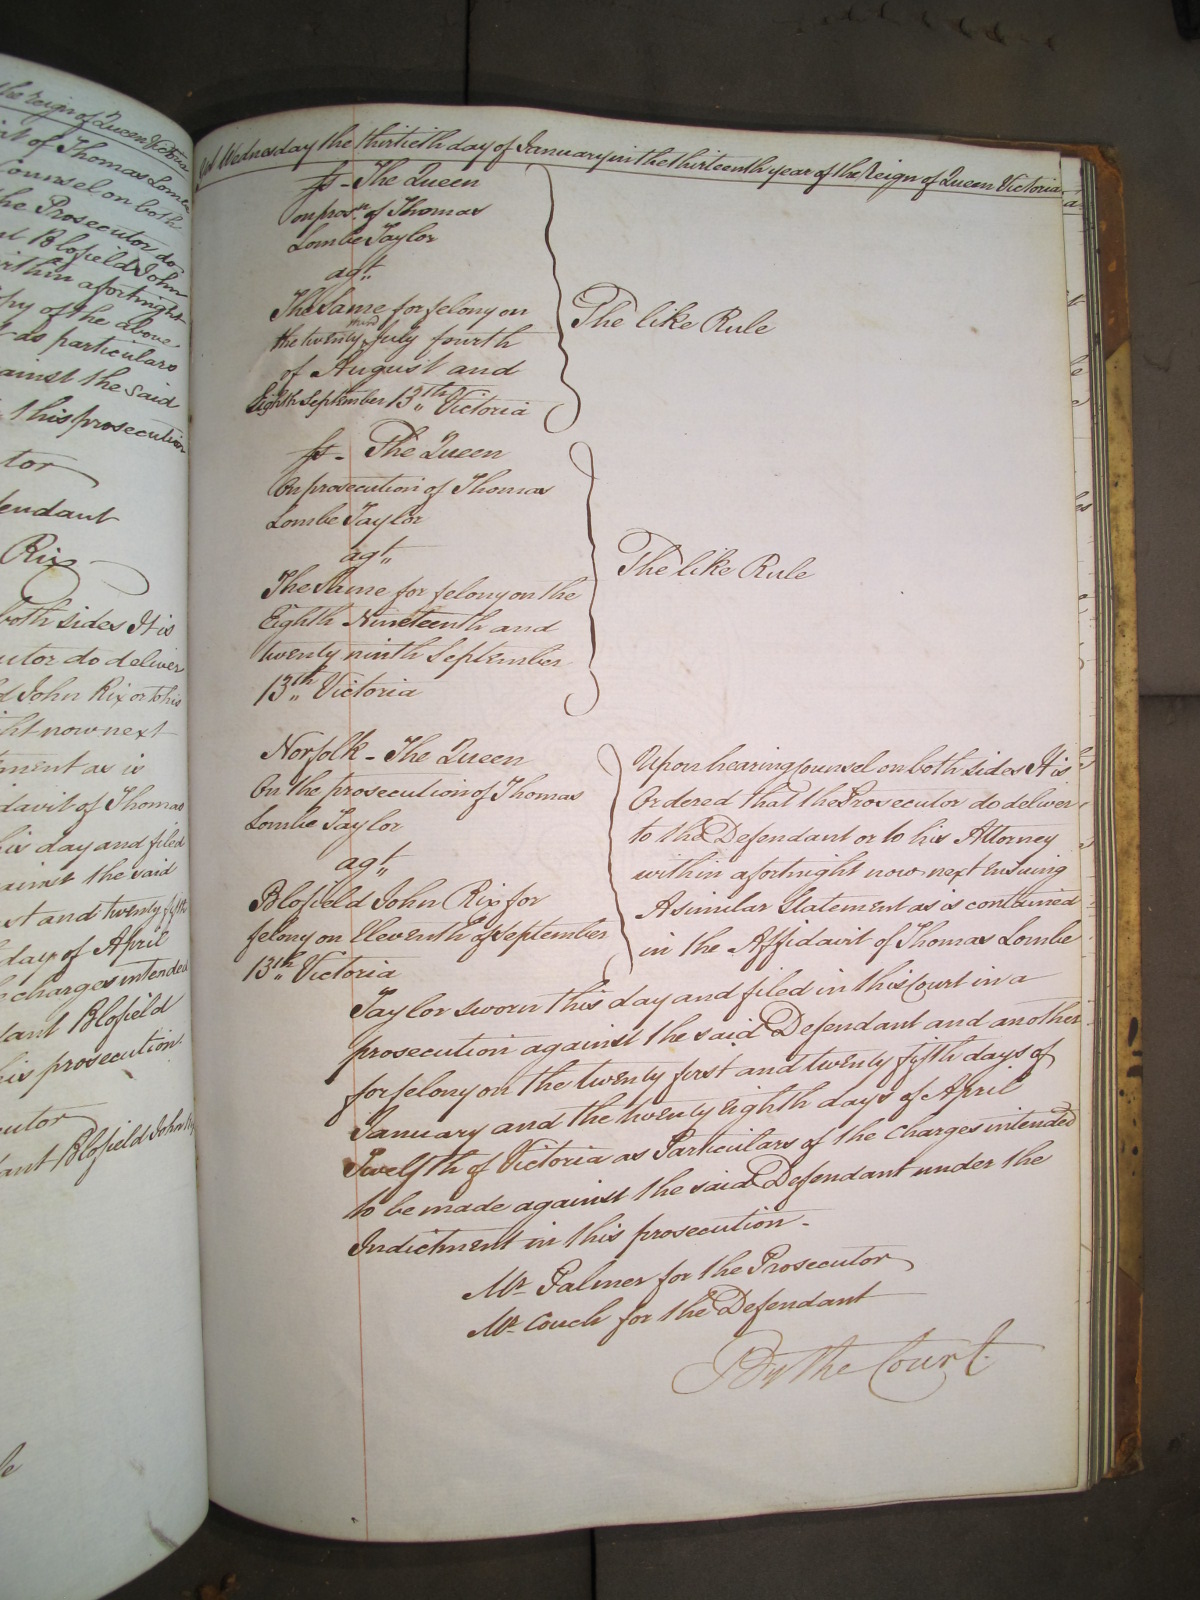 the Reign of Queen Victoria
of Thomas Lombe
Counsel on both
the Prosecutor do
Blofield John
within a fortnight
copy of the above
as particulars
against the said
this prosecution
tor
endant
Rix
both sides It is
utor do deliver
John Rix or to his
ht now next
ment as is
davit of Thomas
his day and filed
ainst the said
st and twenty fifth
day of April
charges intended
dant Blofield
his prosecution.
cutor
ant Blofield John Rix
Wednesday the thirtieth day of January in the thirteenth year of the Reign of Queen Victoria
ss - The Queen
on pros.n of Thomas
Lombe Taylor
agt.
The Same for felony on
the twenty third July fourth
of August and
Eighth September 13th Victoria
The like Rule
ss - The Queen
On prosecution of Thomas
Lombe Taylor
agt.
The Same for felony on the
Eighth Nineteenth and
twenty ninth September
13th Victoria
The like Rule
Norfolk - The Queen
On the prosecution of Thomas
Lombe Taylor
agt.
Blofield John Rix for
felony on Eleventh of September
13th Victoria
Upon hearing Counsel on both sides It is
Ordered that the Prosecutor do deliver
to the Defendant or to his Attorney
within a fortnight now next ensuing
A similar Statement as is contained
in the Affidavit of Thomas Lombe
Taylor sworn this day and filed in this Court in a
prosecution against the said Defendant and another
for felony on the twenty first and twenty fifth days of
January and the twenty eighth days of April
Twelfth of Victoria as Particulars of the charges intended
to be made against the said Defendant under the
Indictment in this prosecution -
Mr. Palmer for the Prosecutor
Mr. Couch for the Defendant
By the Court.